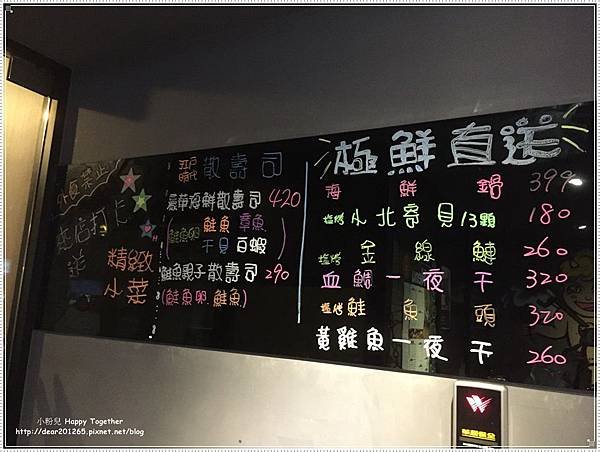 外食禁止
打卡
送
精緻
小菜
江戶
時代 散壽司
豪華海鮮散壽司 420
(鮭魚卵 鮭魚 章魚
干貝 甜蝦)
鮭魚親子散壽司 290
(鮭魚卵.鮭魚)
極鮮直送
海鮮鍋 399
爐烤小北寄貝/3顆 180
鹽烤金線鰱 260
血鯛一夜干 320
鹽烤鮭魚頭 320
黃雞魚一夜干 260
小粉兒 Happy Together
http://dear201265.pixnet.net/blog